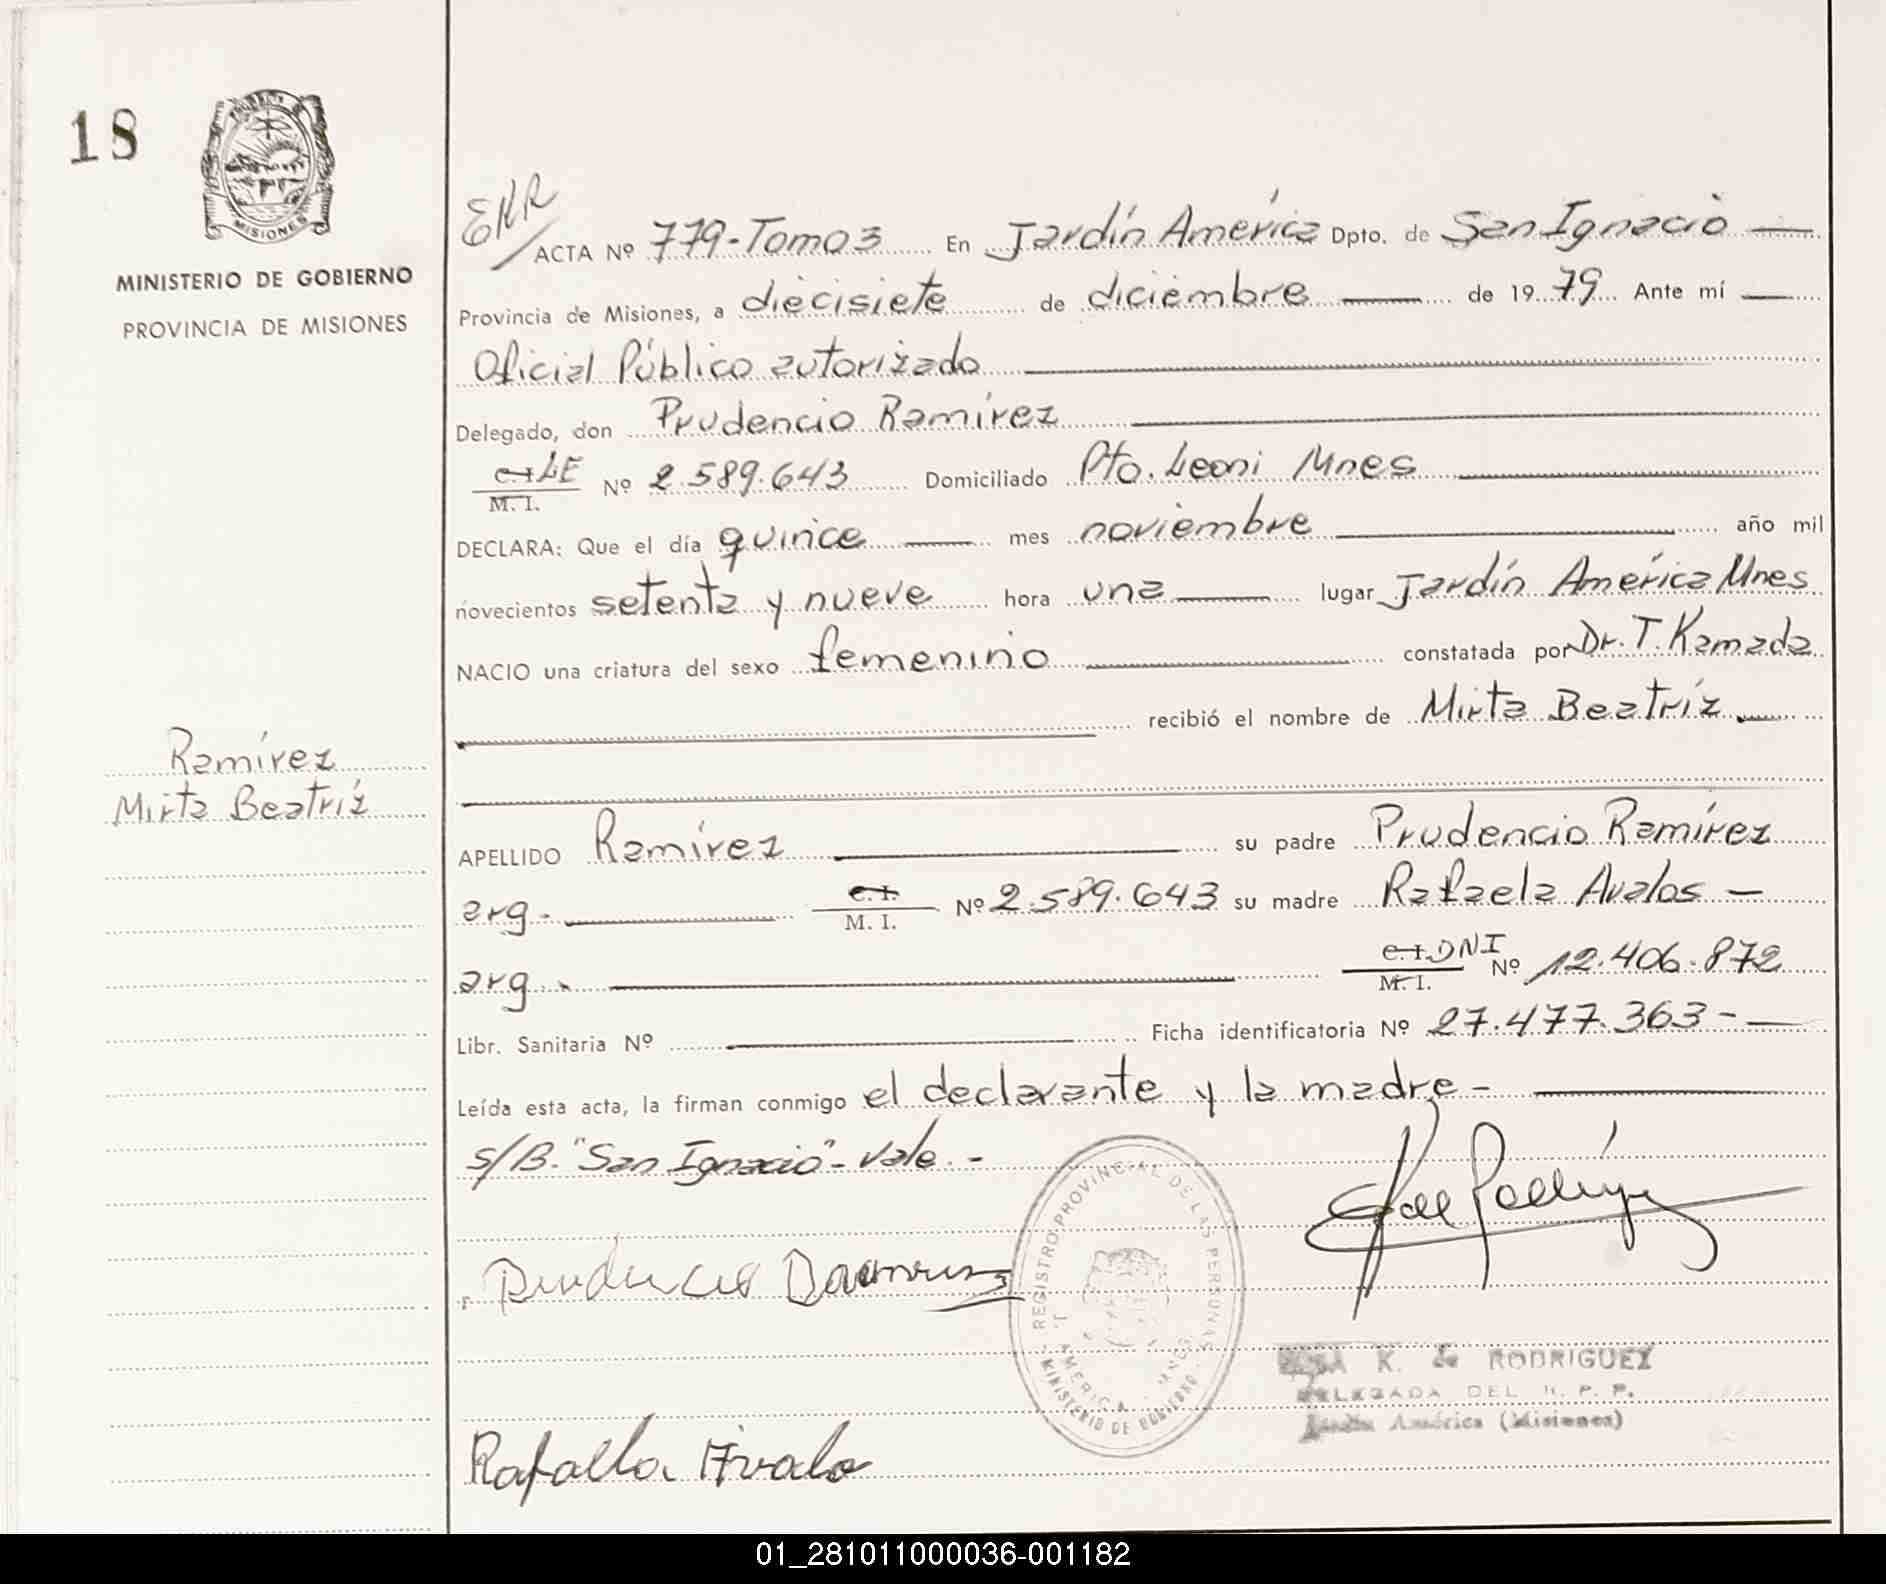 18
MISIONES
MINISTERIO DE GOBIERNO
PROVINCIA DE MISIONES
Ramírez
Mirta Beatríz
ACTA Nº 779-Tomo 3 En Jardín América Dpto. de San Ignacio
Provincia de Misiones, a diecisiete de diciembre de 1979 Ante mí
Oficial Público autorizado
Delegado, don Prudencio Ramírez
C.I. LE
M. I.
Nº 2.589.643 Domiciliado Pto. Leoni Mnes
DECLARA: Que el día quince mes noviembre año mil
novecientos setenta y nueve hora una lugar Jardín América Mnes
NACIO una criatura del sexo femenino constatada por Dr. T. Kamada
recibió el nombre de Mirta Beatríz
APELLIDO Ramírez su padre Prudencio Ramírez
arg. C.I.
M. I.
Nº 2.589.643 su madre Rafaela Avalos
arg. C.I. DNI
M. I.
Nº 12.406.872
Libr. Sanitaria Nº Ficha identificatoria Nº 27.477.363
Leída esta acta, la firman conmigo el declarante y la madre
s/B. "San Ignacio" - Vale. -
REGISTRO PROVINCIAL DE LAS PERSONAS
J. AMERICA - MNES
MINISTERIO DE GOBIERNO
Prudencio Ramirez
K. de RODRIGUEZ
DELEGADA DEL R. P. P.
Jardín América (Misiones)
Rafaella Avalo
01_281011000036-001182